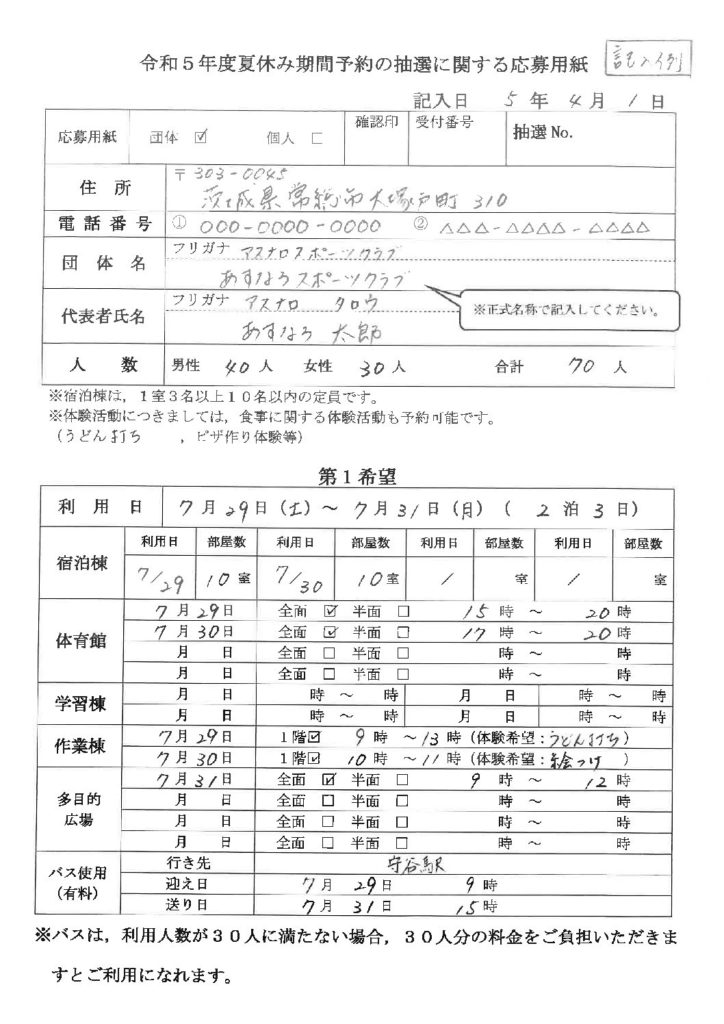 令和５年度夏休み期間予約の抽選に関する応募用紙 記入例
記入日 5 年 4 月 1 日
応募用紙 団体 ☑ 個人 □ 確認印 受付番号 抽選No.
住所 〒303-0045
茨城県常総市大塚戸町 310
電話番号 ① 000-0000-0000 ② △△△-△△△△-△△△△
団体名 フリガナ アスナロスポーツクラブ
あすなろスポーツクラブ
※正式名称で記入してください。
代表者氏名 フリガナ アスナロ タロウ
あすなろ 太郎
人数 男性 40 人 女性 30 人 合計 70 人
※宿泊棟は，１室３名以上１０名以内の定員です。
※体験活動につきましては，食事に関する体験活動も予約可能です。
（うどん打ち ，ピザ作り体験等）
第１希望
利用日 7 月 29 日（土）～ 7 月 31 日（月）（ 2 泊 3 日）
宿泊棟 利用日 部屋数 利用日 部屋数 利用日 部屋数 利用日 部屋数
7/29 10 室 7/30 10 室 / 室 / 室
体育館 7 月 29 日 全面 ☑ 半面 □ 15 時 ～ 20 時
7 月 30 日 全面 ☑ 半面 □ 17 時 ～ 20 時
月 日 全面 □ 半面 □ 時 ～ 時
月 日 全面 □ 半面 □ 時 ～ 時
学習棟 月 日 時 ～ 時 月 日 時 ～ 時
月 日 時 ～ 時 月 日 時 ～ 時
作業棟 7 月 29 日 １階☑ 9 時 ～13 時（体験希望：うどん打ち）
7 月 30 日 １階☑ 10 時 ～11 時（体験希望：絵つけ）
多目的広場 7 月 31 日 全面 ☑ 半面 □ 9 時 ～ 12 時
月 日 全面 □ 半面 □ 時 ～ 時
月 日 全面 □ 半面 □ 時 ～ 時
月 日 全面 □ 半面 □ 時 ～ 時
バス使用（有料） 行き先 守谷駅
迎え日 7 月 29 日 9 時
送り日 7 月 31 日 15 時
※バスは，利用人数が３０人に満たない場合，３０人分の料金をご負担いただきま
すとご利用になれます。